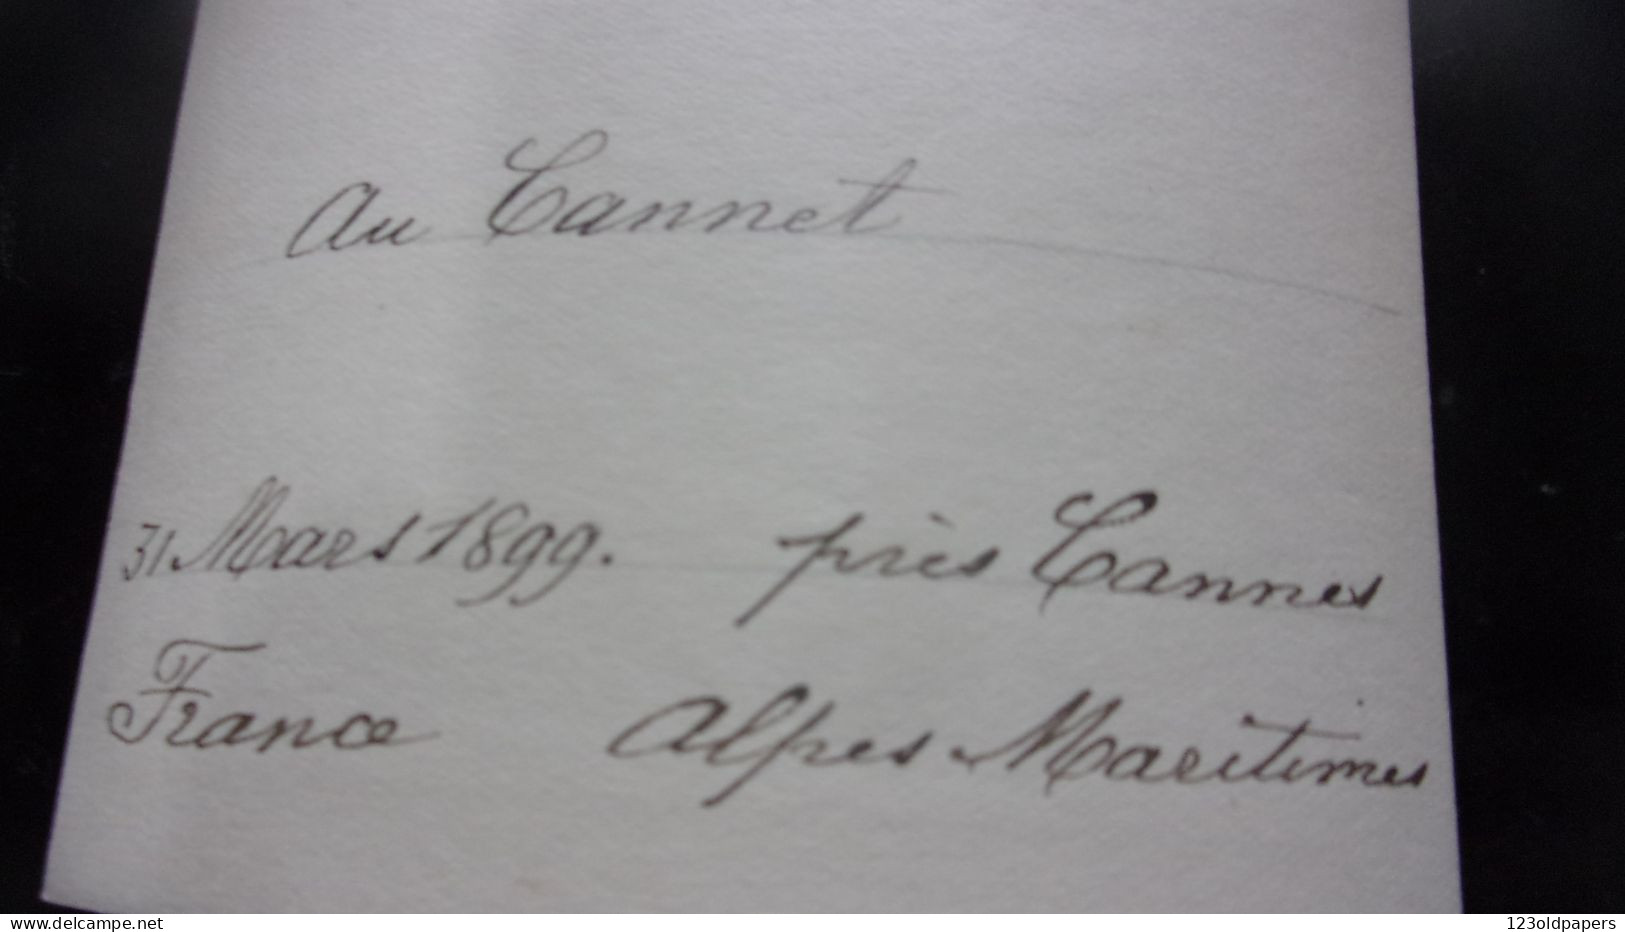 Au Cannet
31 Mars 1899. près Cannes
France Alpes Maritimes
www.delcampe.net
123oldpapers